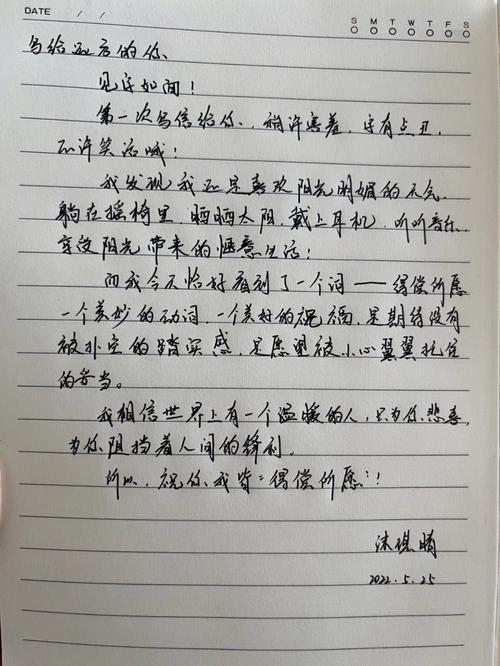 DATE / /
S M T W T F S
写给远方的你、
见字如面！
第一次写信给你、稍许害羞，字有点丑，
不许笑话哦！
我发现我还是喜欢阳光明媚的天气，
躺在摇椅里，晒晒太阳，戴上耳机，听听音乐，
享受阳光带来的惬意生活！
而我今天恰好看到了一个词——得偿所愿
一个美妙的动词，一个美好的祝福，是期待没有
被扑空的踏实感，是愿望被小心翼翼托住
的妥当。
我相信世界上有一个温暖的人，只为你悲喜，
为你阻挡着人间的锋利。
所以，祝你我皆"得偿所愿"！
沐琪晴
2022.5.25